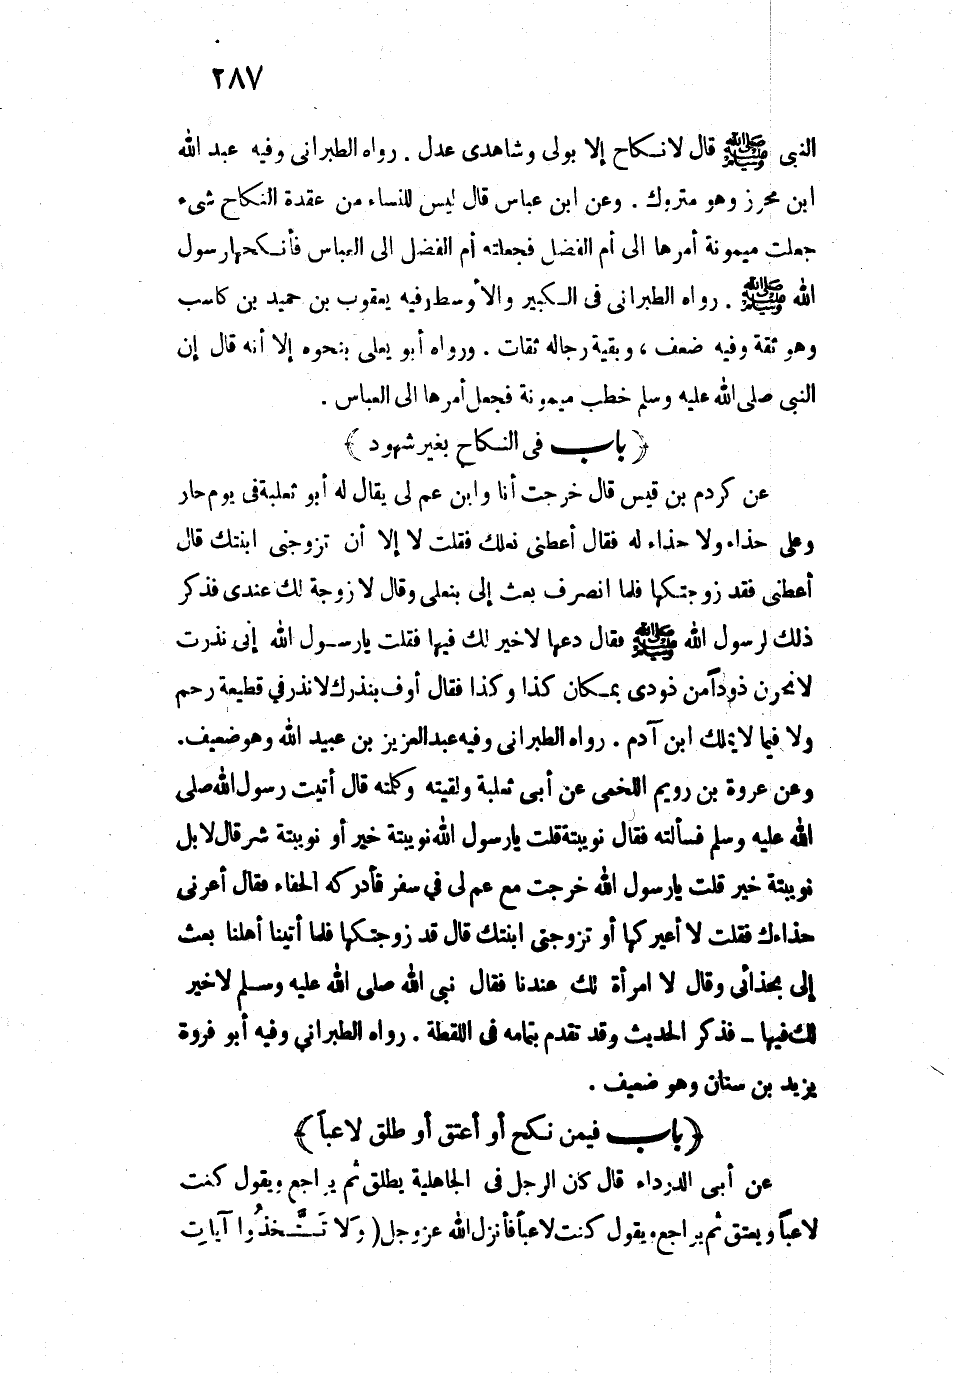 ٢٨٧
النبى ﷺ قال لا نـكاح إلا بولى وشاهدى عدل . رواه الطبرانى وفيه عبد الله
ابن محرز وهو متروك . وعن ابن عباس قال ليس للنساء من عقدة النكاح شىء
جعلت ميمونة أمرها الى أم الفضل فجعلته أم الفضل الى العباس فأنـكحها رسول
الله ﷺ . رواه الطبرانى فى الـكبير والأوسط وفيه يعقوب بن حميد بن كاسب
وهو ثقة وفيه ضعف ، وبقية رجاله ثقات . ورواه أبو يعلى بنحوه إلا أنه قال إن
النبى صلى الله عليه وسلم خطب ميمونة فجعل أمرها الى العباس .
﴿ باب فى النـكاح بغير شهود ﴾
عن كردم بن قيس قال خرجت أنا وابن عم لى يقال له أبو ثعلبة فى يوم حار
وعلى حذاء ولا حذاء له فقال أعطنى نعلك فقلت لا إلا أن تزوجنى ابنتك قال
أعطنى فقد زوجتـكها فلما انصرف بعث إلى بنعلى وقال لا زوجة لك عندى فذكر
ذلك لرسول الله ﷺ فقال دعها لا خير لك فيها فقلت يا رسـول الله إنى نذرت
لانحرن ذوداً من ذودى بمـكان كذا وكذا فقال أوف بنذرك لا نذر في قطيعة رحم
ولا فيما لا يملك ابن آدم . رواه الطبرانى وفيه عبد العزيز بن عبيد الله وهو ضعيف.
وعن عروة بن رويم اللخمى عن أبى ثعلبة ولقيته وكلمته قال أتيت رسول الله صلى
الله عليه وسلم فسألته فقال نويبتة قلت يا رسول الله نويبتة خير أو نويبتة شر قال لا بل
نويبتة خير قلت يا رسول الله خرجت مع عم لى في سفر فأدركه الحفاء فقال أعرنى
حذاءك فقلت لا أعيركها أو تزوجنى ابنتك قال قد زوجتـكها فلما أتينا أهلنا بعث
إلى بحذائى وقال لا امرأة لك عندنا فقال نبى الله صلى الله عليه وسـلم لا خير
لك فيها ــ فذكر الحديث وقد تقدم بتمامه فى اللقطة . رواه الطبراني وفيه أبو فروة
يزيد بن سنان وهو ضعيف .
﴿ باب فيمن نـكح أو أعتق أو طلق لاعباً ﴾
عن أبى الدرداء قال كان الرجل فى الجاهلية يطلق ثم يراجع ويقول كنت
لاعباً ويعتق ثم يراجع ويقول كنت لاعباً فأنزل الله عز وجل ( وَلا تَتَّـخذُوا آيَاتِ